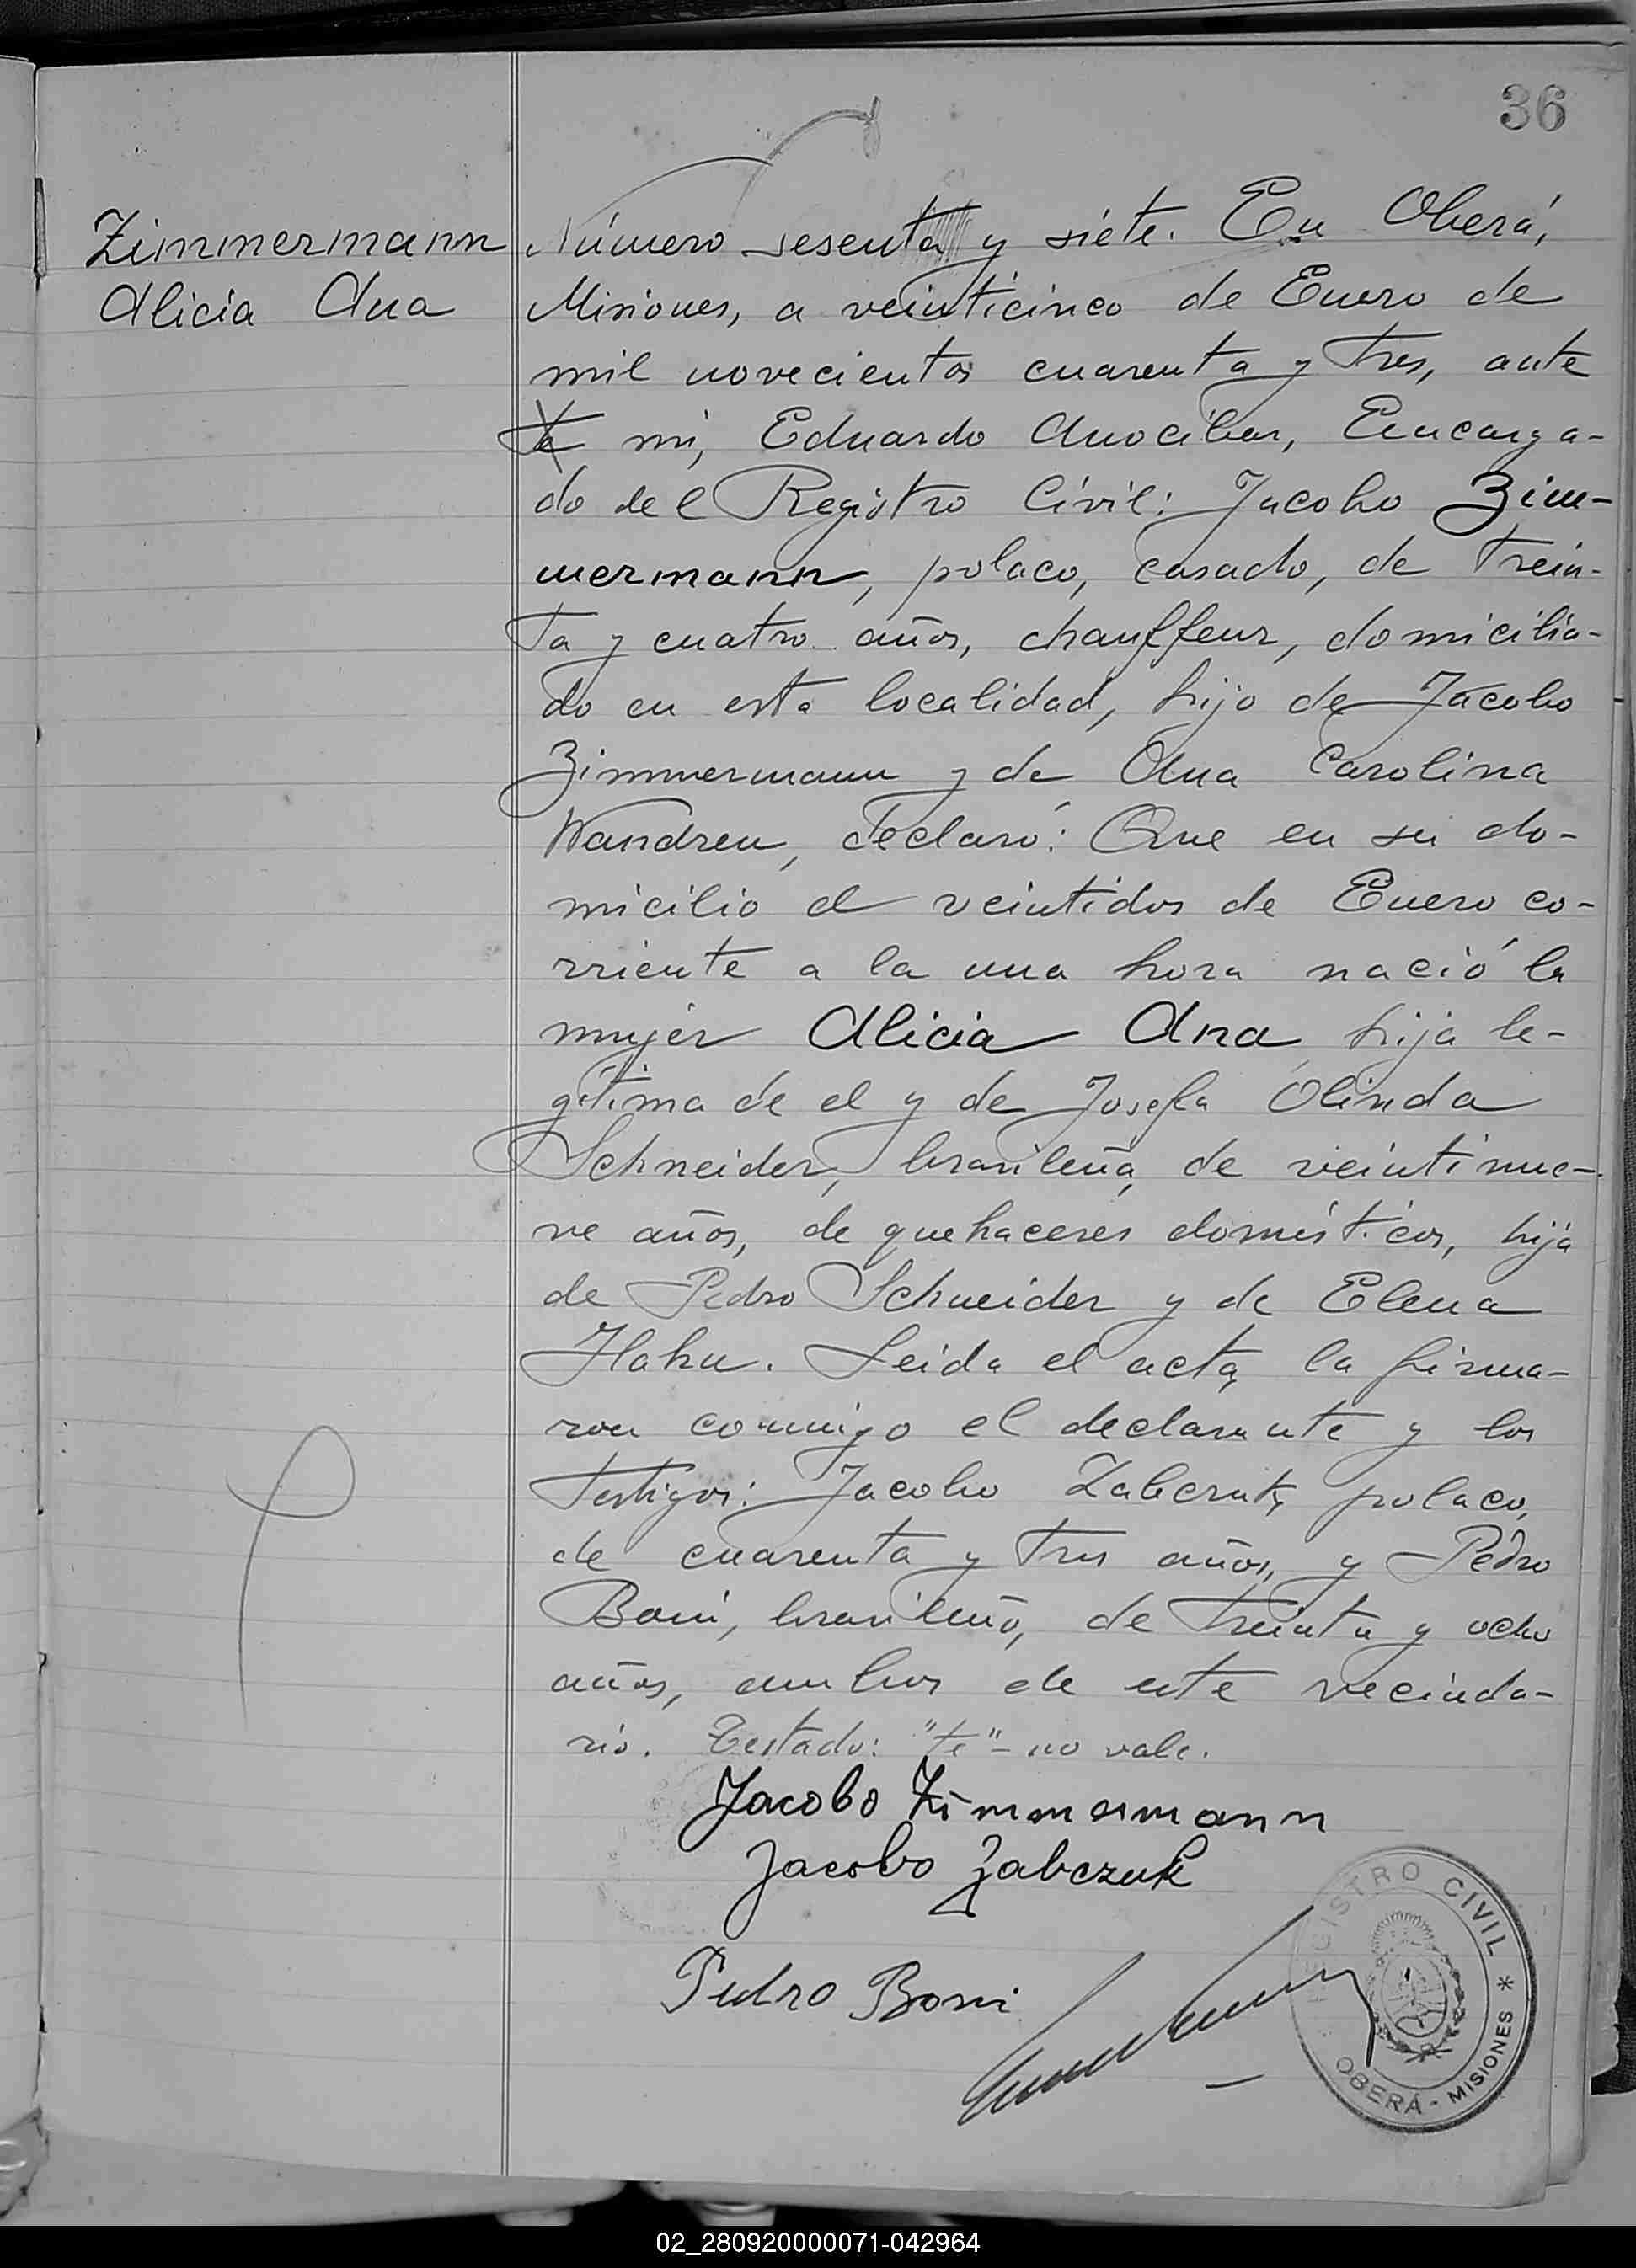 36
Zimmermann
Alicia Ana
Número sesenta y siete. En Oberá,
Misiones, a veinticinco de Enero de
mil novecientos cuarenta y tres, ante
te mi, Eduardo Anocibar, Encarga-
do del Registro Civil: Jacobo Zim-
mermann, polaco, casado, de trein-
ta y cuatro años, chauffeur, domicilia-
do en esta localidad, hijo de Jacobo
Zimmermann y de Ana Carolina
Wandreu, declaró: Que en su do-
micilio el veintidos de Enero co-
rriente a la una hora nació la
mujer Alicia Ana, hija le-
gítima de el y de Josefa Olinda
Schneider, brasileña, de veintinue-
ve años, de quehaceres domésticos, hija
de Pedro Schneider y de Elena
Hahn. Leida el acta, la firma-
ron conmigo el declarante y los
testigos: Jacobo Zabczuk, polaco,
de cuarenta y tres años, y Pedro
Boni, brasileño, de treinta y ocho
años, ambos de este vecinda-
rio. Testado: "te" - no vale.
Jacobo Zimmermann
Jacobo Zabczuk
Pedro Boni
REGISTRO CIVIL * OBERÁ - MISIONES
02_280920000071-042964